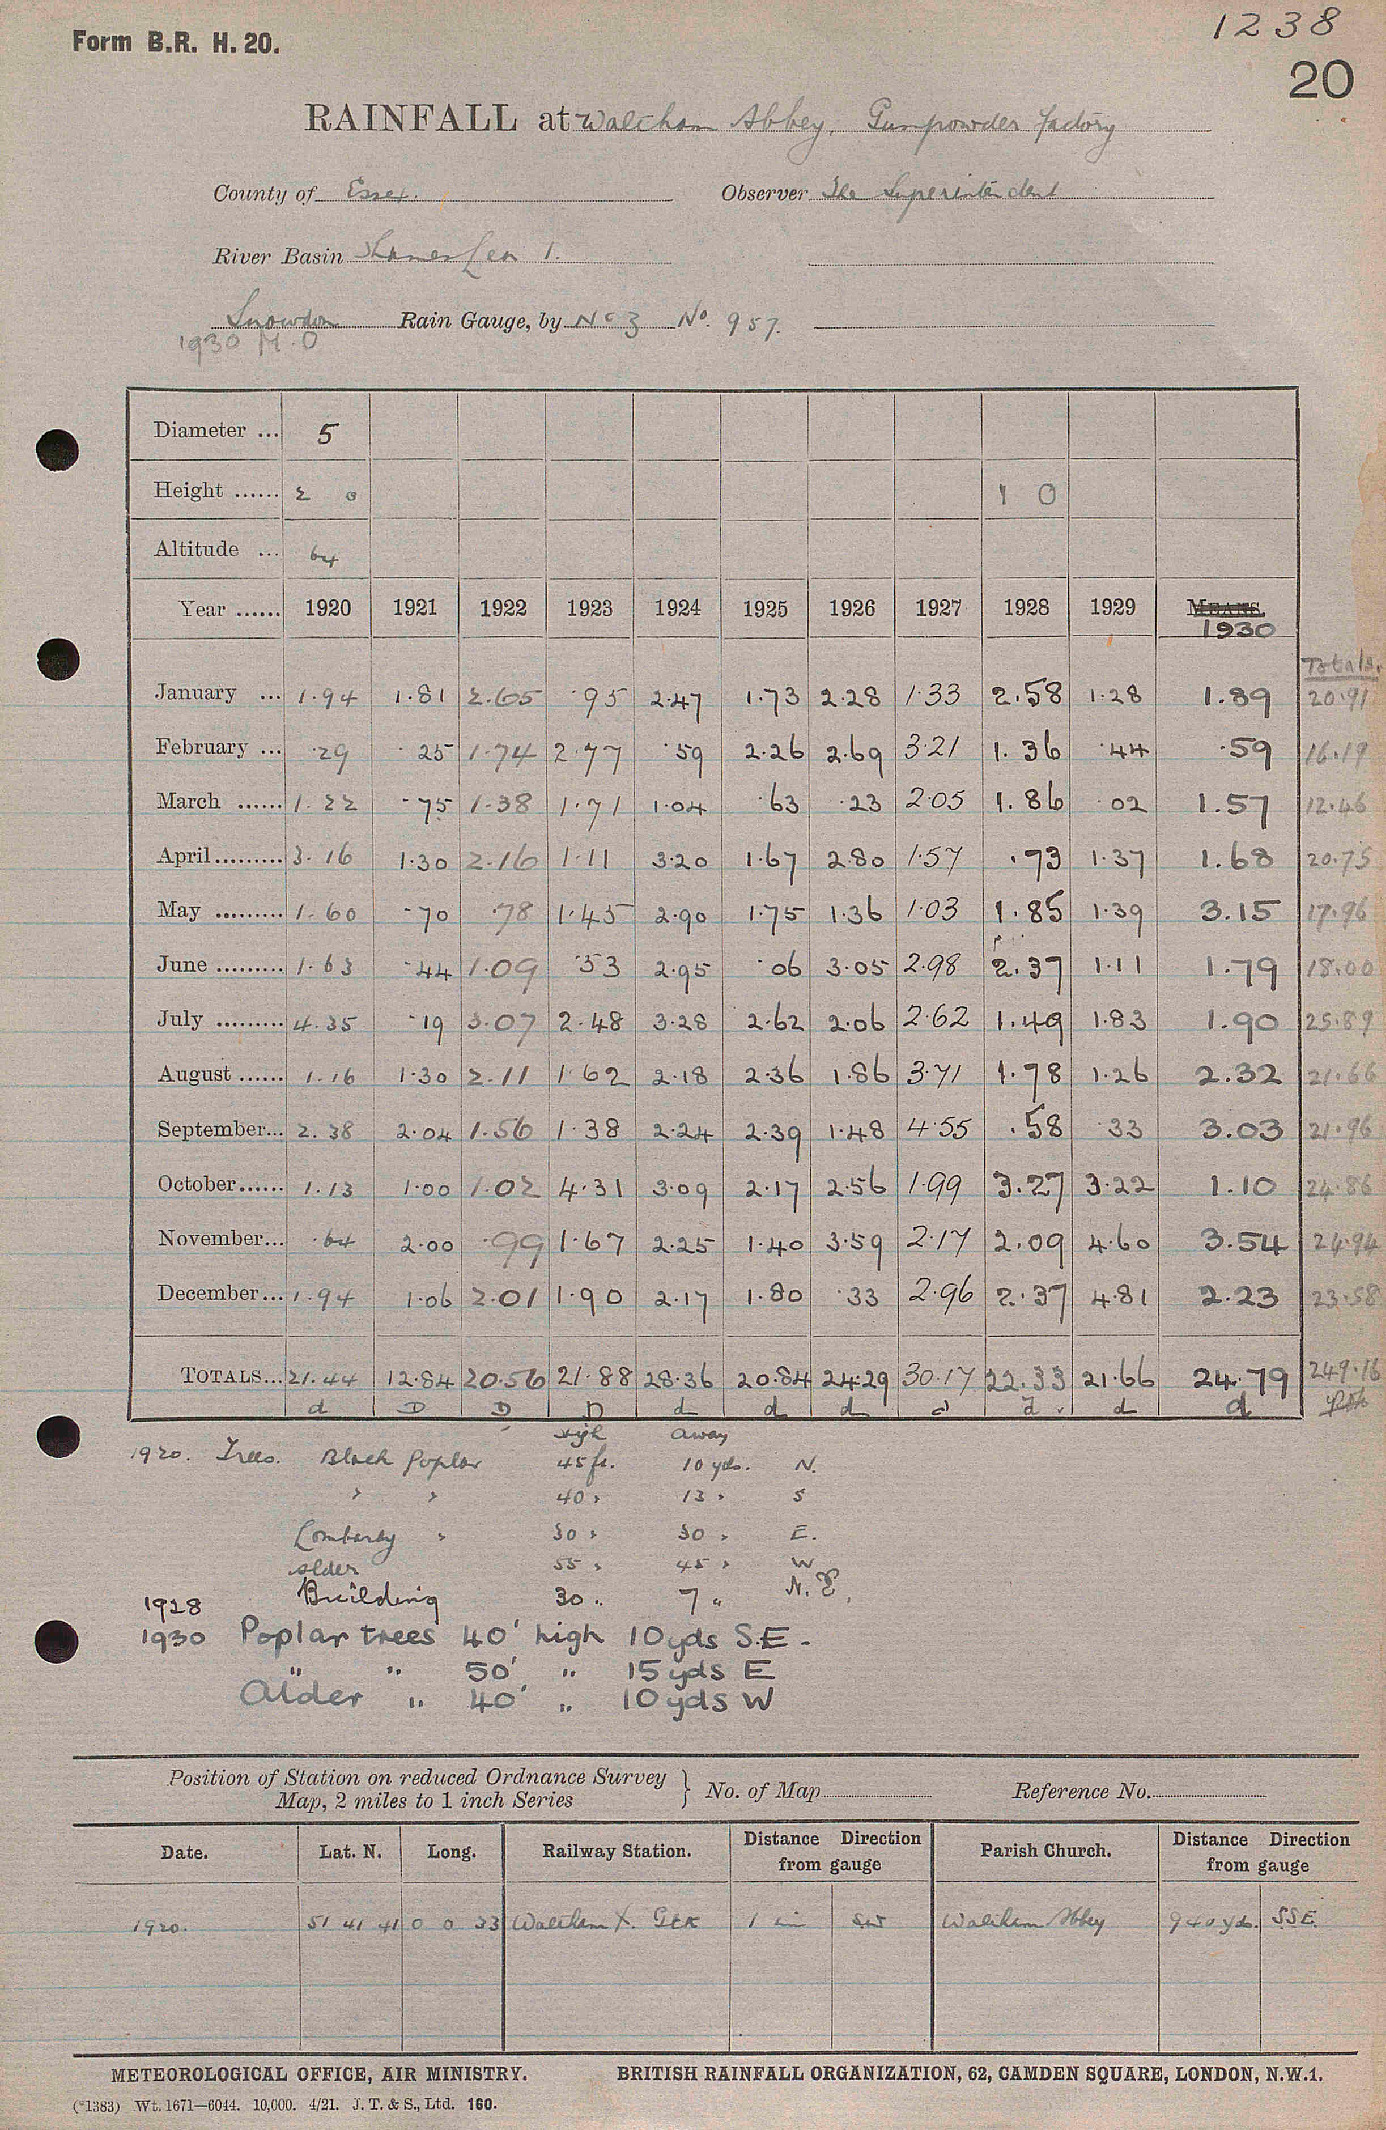 1238
Form B.R. H. 20.
20
RAINFALL at Waltham Abbey. Gunpowder Factory
County of Essex. Observer The Superintendent
River Basin Thames Lea 1.
Snowdon Rain Gauge, by No 3 No. 957.
1930 M.O
Diameter ... 5
Height ...... 2 0 1 0
Altitude ... 64
Year ...... 1920 1921 1922 1923 1924 1925 1926 1927 1928 1929 MEANS.
1930
Totals.
January ... 1.94 1.81 2.65 .95 2.47 1.73 2.28 1.33 2.58 1.28 1.89 20.91
February ... .29 .25 1.74 2.77 .59 2.26 2.69 3.21 1.36 .44 .59 16.19
March ...... 1.22 .75 1.38 1.71 1.04 .63 .23 2.05 1.86 02 1.57 12.46
April ......... 3.16 1.30 2.16 1.11 3.20 1.67 2.80 1.57 .73 1.37 1.68 20.75
May ......... 1.60 .70 .78 1.45 2.90 1.75 1.36 1.03 1.85 1.39 3.15 17.96
June ......... 1.63 .44 1.09 .53 2.95 .06 3.05 2.98 2.37 1.11 1.79 18.00
July ......... 4.35 .19 3.07 2.48 3.28 2.62 2.06 2.62 1.49 1.83 1.90 25.89
August ...... 1.16 1.30 2.11 1.62 2.18 2.36 1.86 3.71 1.78 1.26 2.32 21.66
September... 2.38 2.04 1.56 1.38 2.24 2.39 1.48 4.55 .58 .33 3.03 21.96
October...... 1.13 1.00 1.02 4.31 3.09 2.17 2.56 1.99 3.27 3.22 1.10 24.86
November... .64 2.00 .99 1.67 2.25 1.40 3.59 2.17 2.09 4.60 3.54 24.94
December... 1.94 1.06 2.01 1.90 2.17 1.80 .33 2.96 2.37 4.81 2.23 23.58
TOTALS... 21.44 12.84 20.56 21.88 28.36 20.84 24.29 30.17 22.33 21.66 24.79 249.16
d D D D d d d d d d d
high away
1920. Trees. Black Poplar 45 ft. 10 yds. N.
" " 40 " 13 " S
Lombardy " 50 " 30 " E.
Alder 55 " 45 " W
1928 Building 30 " 7 " N.E.
1930 Poplar trees 40' high 10 yds S.E.
" " 50' " 15 yds E
Alder " 40' " 10 yds W
Position of Station on reduced Ordnance Survey
Map, 2 miles to 1 inch Series } No. of Map Reference No.
Date. Lat. N. Long. Railway Station. Distance Direction from gauge Parish Church. Distance Direction from gauge
1920. 51 41 41 0 0 33 Waltham X. GER 1 mi SW Waltham Abbey 940 yds. SSE.
METEOROLOGICAL OFFICE, AIR MINISTRY. BRITISH RAINFALL ORGANIZATION, 62, CAMDEN SQUARE, LONDON, N.W.1.
(*1383) Wt. 1671—6044. 10,000. 4/21. J. T. & S., Ltd. 160.